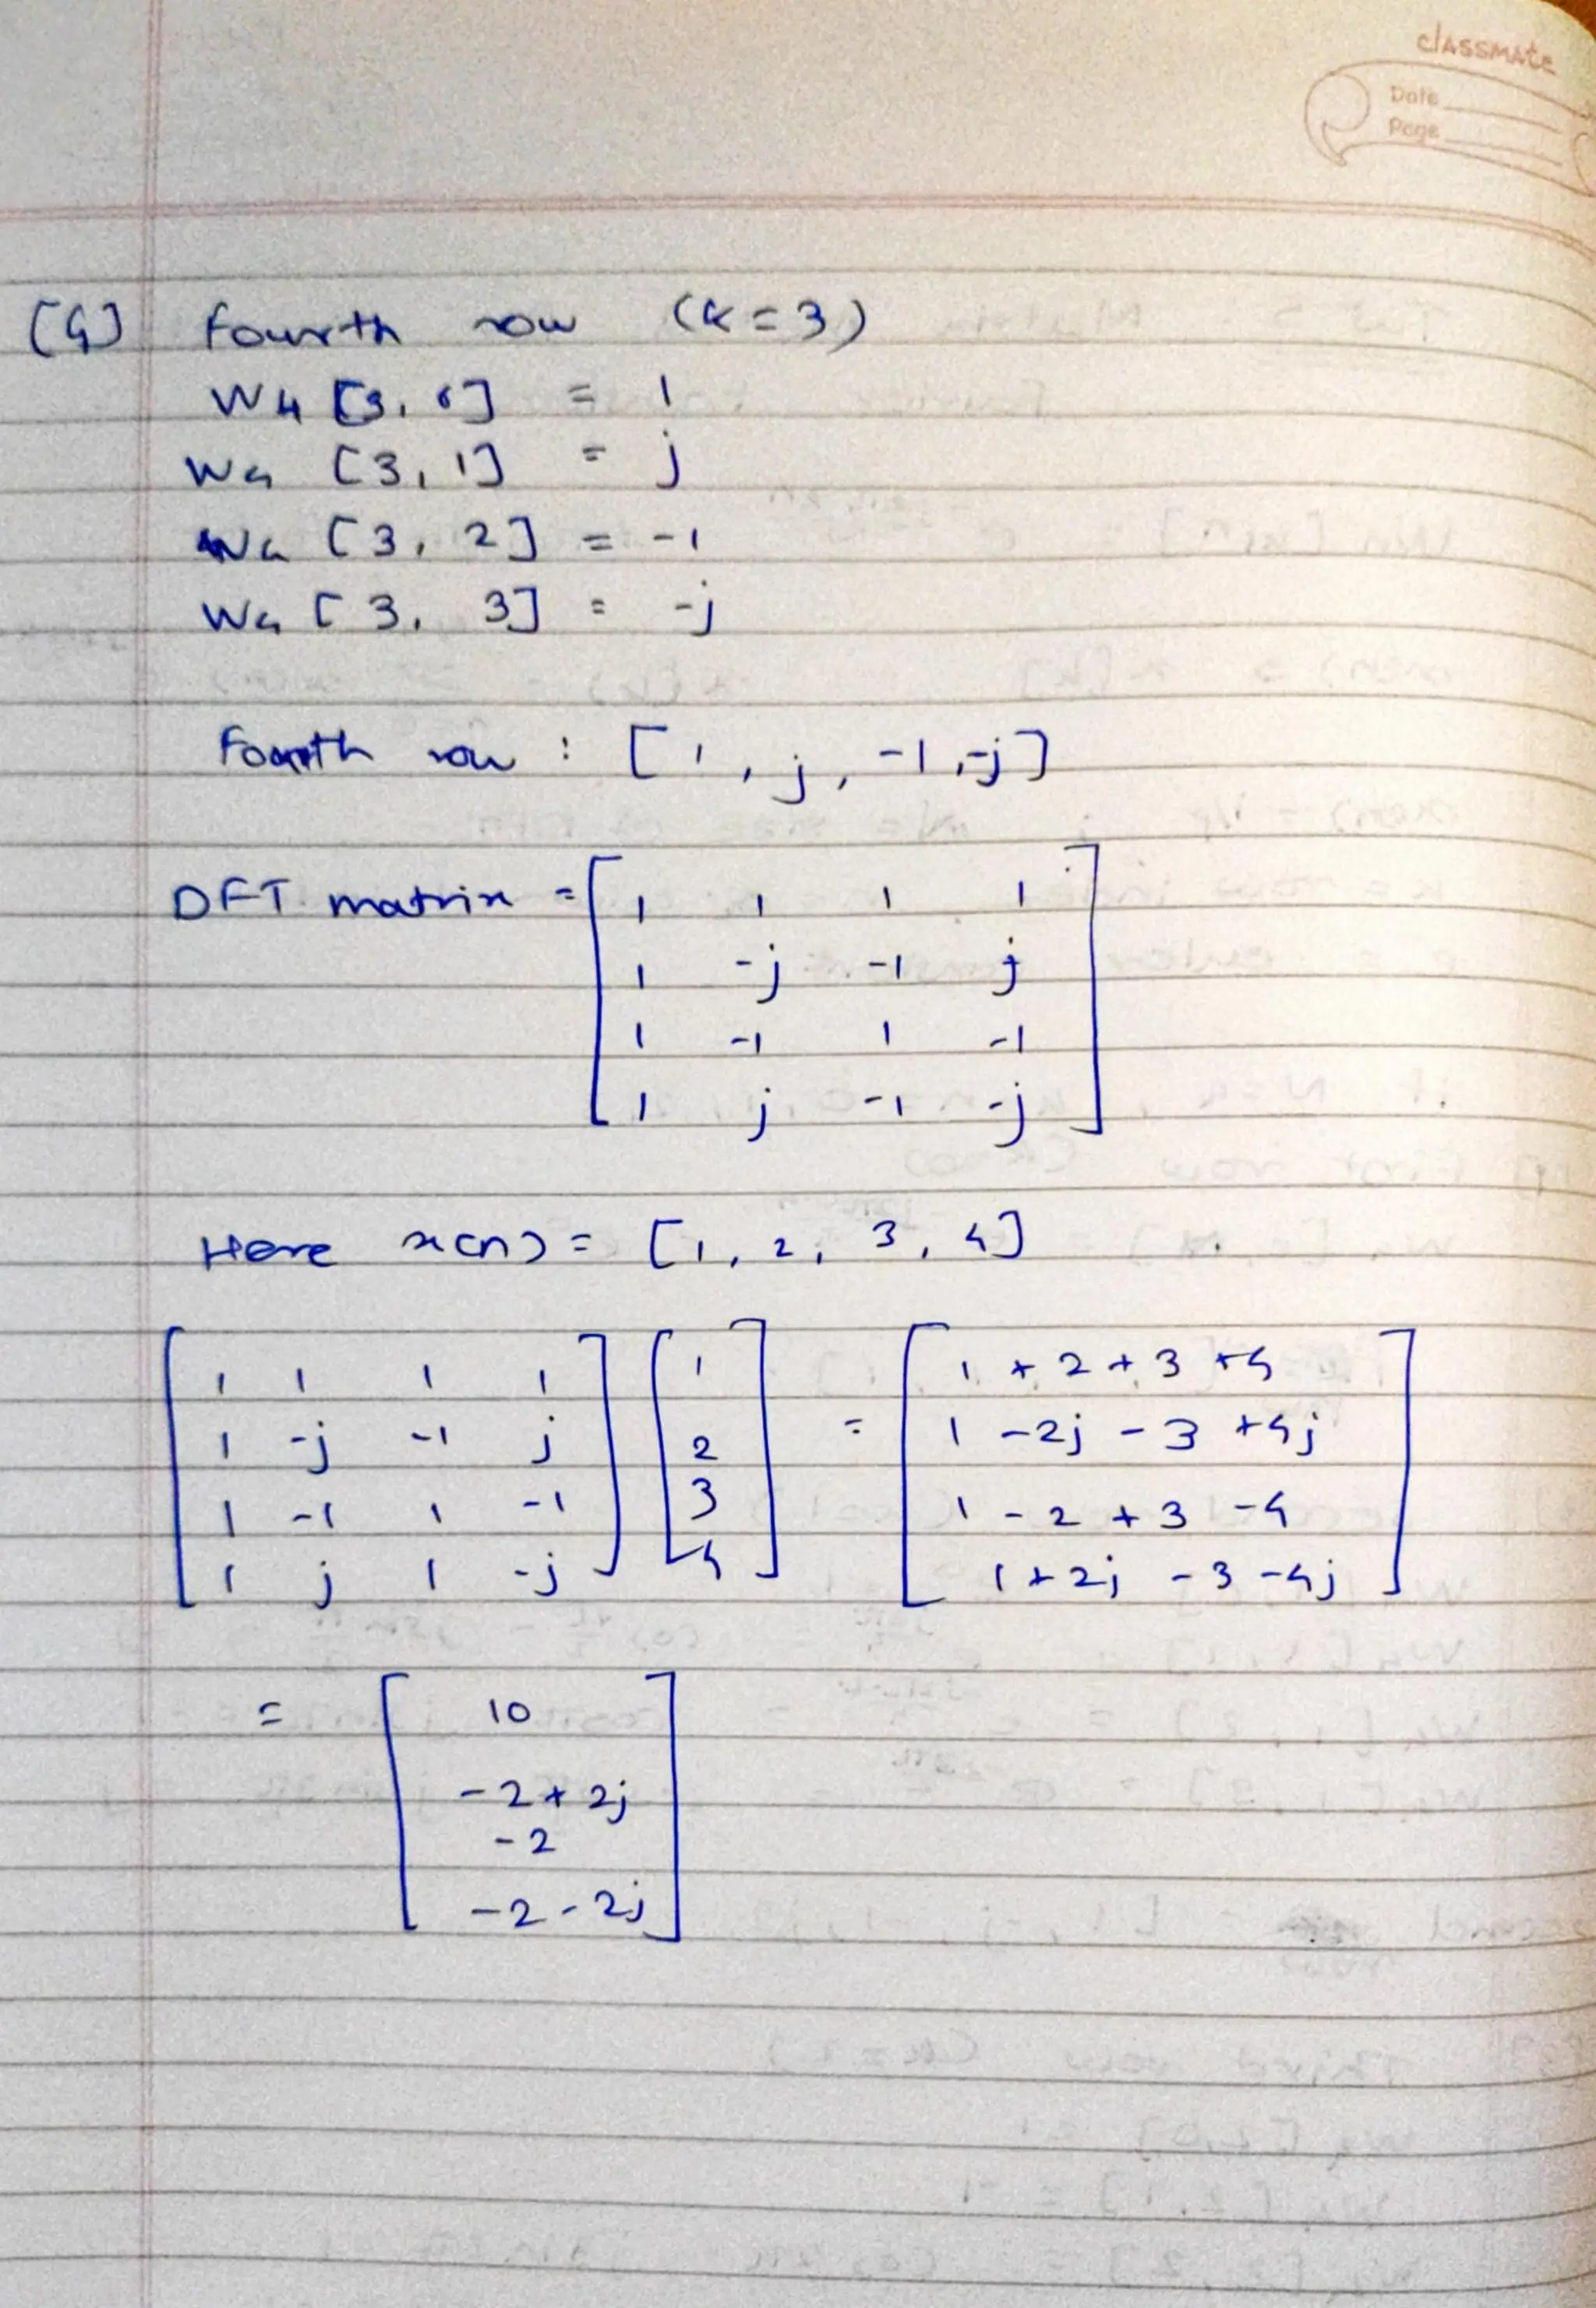 classmate
Date
Page
[4] fourth row (k=3)
W4 [3, 0] = 1
W4 [3, 1] = j
W4 [3, 2] = -1
W4 [3, 3] = -j
Fourth row : [1, j, -1, -j]
DFT matrix = [ 1 1 1 1
1 -j -1 j
1 -1 1 -1
1 j -1 -j ]
Here x(n) = [1, 2, 3, 4]
[ 1 1 1 1 ] [ 1 ] = [ 1 + 2 + 3 + 4 ]
1 -j -1 j 2 1 - 2j - 3 + 4j
1 -1 1 -1 3 1 - 2 + 3 - 4
1 j 1 -j 4 1 + 2j - 3 - 4j
= [ 10
-2 + 2j
-2
-2 - 2j ]